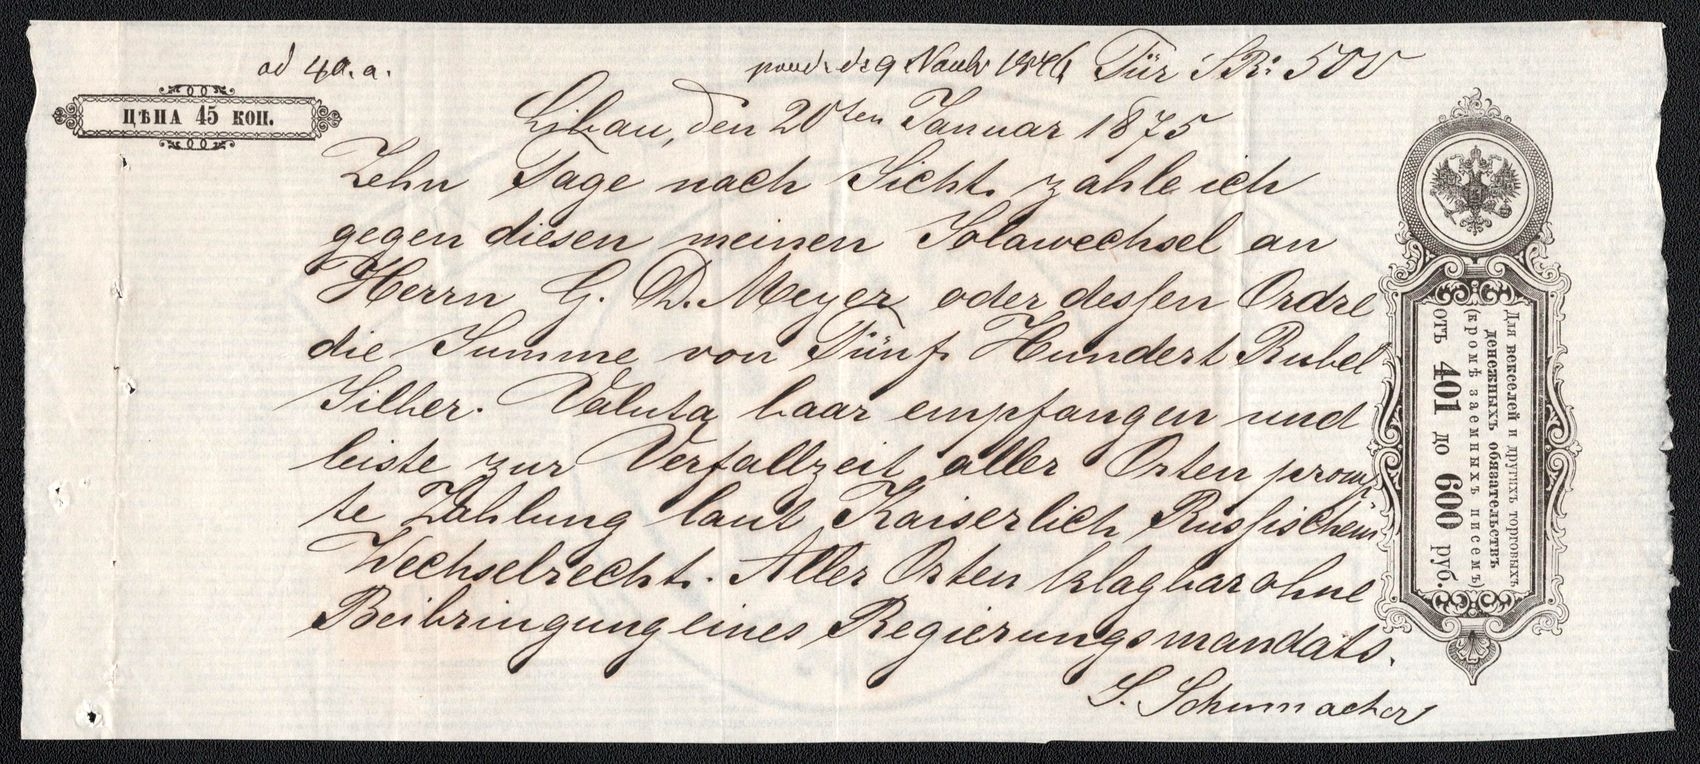 ad 40.a.
Für SR: 500
ЦѢНА 45 КОП.
Libau, den 20ten Januar 1875
Zehn Tage nach Sicht zahle ich
gegen diesen meinen Solawechsel an
Herrn G. D. Meyer oder dessen Ordre
die Summe von Fünf Hundert Rubel
Silber. Valuta baar empfangen und
leiste zur Verfallzeit aller Orten promp
te Zahlung laut Kaiserlich Russischem
Wechselrecht. Aller Orten klagbar ohne
Beibringung eines Regierungsmandats.
S. Schumacher
Для векселей и другихъ торговыхъ
денежныхъ обязательствъ
(кромѣ заемныхъ писемъ)
отъ 401 до 600 руб.